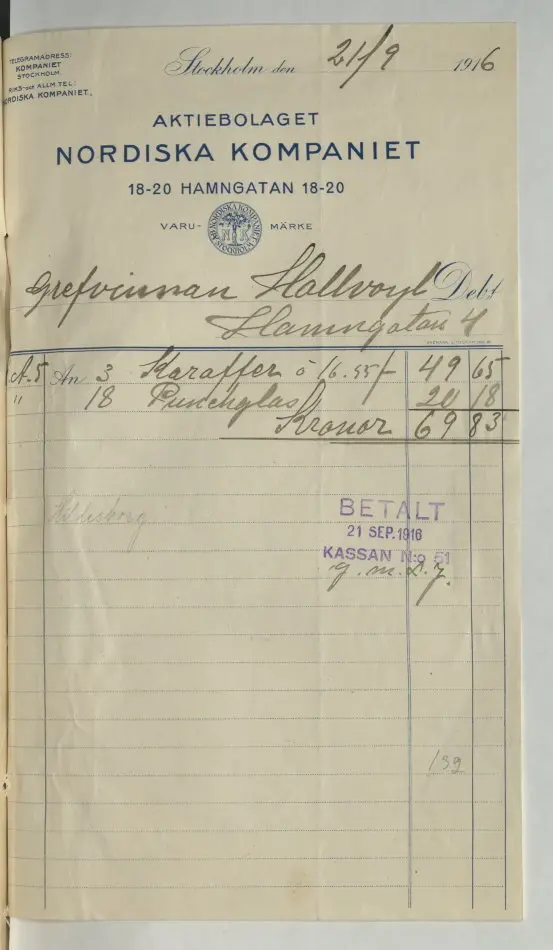 TELEGRAMADRESS:
KOMPANIET
STOCKHOLM.
RIKS- och ALLM. TEL.:
NORDISKA KOMPANIET.
Stockholm den 21/9 1916
AKTIEBOLAGET
NORDISKA KOMPANIET
18-20 HAMNGATAN 18-20
VARU- MÄRKE
NORDISKA KOMPANIET
NK
Grefvinnan Hallwyl Debt
Hamngatan 4
A.5 An 3 Karaffer à 16.55/- 49 65
" 18 Punchglas 20 18
Kronor 69 83
BETALT
21 SEP. 1916
KASSAN N:o 51
139